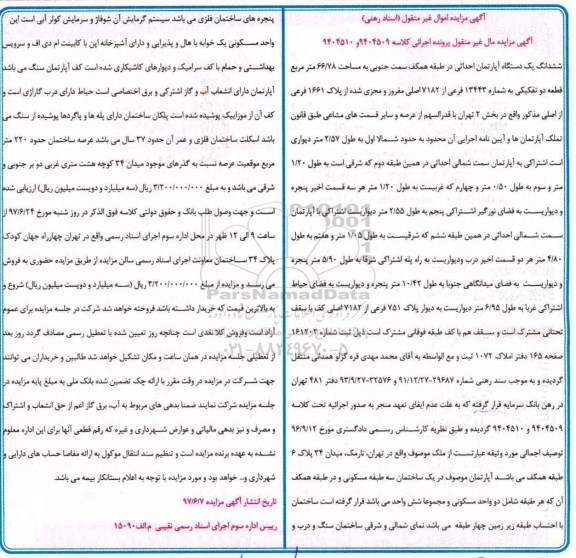 آگهی مزایده اموال غیر منقول (اسناد رهنی)
آگهی مزایده مال غیر منقول پرونده اجرائی کلاسه ۹۴۰۴۵۰۹و ۹۴۰۴۵۱۰
ششدانگ یک دستگاه آپارتمان احداثی در طبقه همکف سمت جنوبی به مساحت ۶۶/۷۸ متر مربع
قطعه دو تفکیکی به شماره ۱۳۴۴۳ فرعی از ۷۱۸۲ اصلی مفروز و مجزی شده از پلاک ۱۶۶۱ فرعی
از اصلی مذکور واقع در بخش ۲ تهران با قدرالسهم از عرصه و سایر قسمت های مشاعی طبق قانون
تملک آپارتمان ها و آیین نامه اجرایی آن محدود به حدود شمالا اول به طول ۲/۵۷ متر دیواری
است اشتراکی به آپارتمان سمت شمالی احداثی در همین طبقه دوم که شرقی است به طول ۱/۲۰
متر و سوم به طول ۰/۵۰ متر و چهارم که غربیست به طول ۱/۲۰ متر هر سه قسمت اخیر پنجره
و دیواریست به فضای نورگیر اشتراکی پنجم به طول ۲/۵۵ متر دیواریست اشتراکی با آپارتمان
سمت شمالی احداثی در همین طبقه ششم که شرقیست به طول ۱/۰۵ متر و هفتم به طول
۴/۸۰ متر هر دو قسمت اخیر درب ودیواریست به راه پله اشتراکی شرقا به طول ۵/۹۰ متر پنجره
و دیواریست به فضای میدانگاهی جنوبا به طول ۱۰/۴۲ متر پنجره و دیواریست به فضای حیاط
اشتراکی غربا به طول ۶/۹۵ متر دیواریست به دیوار پلاک ۷۵۱ فرعی از ۷۱۸۲ اصلی کف با سقف
تحتانی مشترک است و سقف هم با کف طبقه فوقانی مشترک است ذیل ثبت شماره ۱۶۱۲۰۳
صفحه ۱۶۵ دفتر املاک ۱۰۷۲ ثبت و مع الواسطه به آقای محمد مهدی قره گزلو همدانی منتقل
گردیده و به موجب سند رهنی شماره ۲۹۶۸۷-۹۱/۱۲/۲۷ و ۳۲۵۷۶-۹۳/۹/۲۷ دفتر ۴۸۱ تهران
در رهن بانک سرمایه قرار گرفته که به علت عدم ایفای تعهد منجر به صدور اجرائیه تحت کلاسه
۹۴۰۴۵۰۹ و ۹۴۰۴۵۱۰ گردیده و طبق نظریه کارشناس رسمی دادگستری مورخ ۹۶/۹/۱۲
توصیف اجمالی مورد وثیقه عبارتست از ملک موصوف واقع در تهران، نارمک، میدان ۳۴ پلاک ۶
طبقه همکف می باشد آپارتمان موصوف در یک ساختمان سه طبقه مسکونی و در طبقه همکف
آن که هر طبقه شامل دو واحد مسکونی و مجموعا شش واحد می باشد قرار گرفته است ساختمان
با احتساب طبقه زیر زمین چهار طبقه می باشد نمای شمالی و شرقی ساختمان سنگ و درب و
پنجره های ساختمان فلزی می باشد سیستم گرمایش آن شوفاژ و سرمایش کولر آبی است این
واحد مسکونی یک خوابه با هال و پذیرایی و دارای آشپزخانه اپن با کابینت ام دی اف و سرویس
بهداشتی و حمام با کف سرامیک و دیوارهای کاشیکاری شده است کف آپارتمان سنگ می باشد
آپارتمان دارای انشعاب آب و گاز اشترکی و برق اختصاصی است حیاط دارای درب گاراژی است و
کف آن از موزاییک پوشیده شده است پلکان ساختمان دارای پله ها و پاگردها پوشیده از سنگ می
باشد اسکلت ساختمان فلزی و عمر آن حدود ۳۷ سال می باشد عرصه ساختمان حدود ۲۲۰ متر
مربع موقعیت عرصه نسبت به گذرهای موجود میدان ۳۴ کوچه هشت متری غربی دو بر جنوبی و
شرقی می باشد و به مبلغ ۳/۲۰۰/۰۰۰/۰۰۰ ریال (سه میلیارد و دویست میلیون ریال) ارزیابی شده
است و جهت وصول طلب بانک و حقوق دولتی کلاسه فوق الذکر در روز شنبه مورخ ۹۷/۶/۲۴ از
ساعت ۹ الی ۱۲ ظهر در محل اداره سوم اجرای اسناد رسمی واقع در تهران چهارراه جهان کودک
پلاک ۳۴ ساختمان معاونت اجرای اسناد رسمی سالن مزایده از طریق مزایده حضوری به فروش
می رسد و مزایده از مبلغ ۳/۲۰۰/۰۰۰/۰۰۰ ریال (سه میلیارد و دویست میلیون ریال) شروع و
به بالاترین قیمت که خریدار داشته باشد فروخته خواهد شد شرکت در جلسه مزایده برای عموم
آزاد است وفروش کلا نقدی است چنانچه روز تعیین شده با تعطیل رسمی مصادف گردد روز بعد
از تعطیلی جلسه مزایده در همان ساعت و مکان تشکیل خواهد شد طالبین و خریداران می توانند
جهت شرکت در مزایده در وقت مقرر با ارائه چک تضمین شده بانک ملی به مبلغ پایه مزایده در
جلسه مزایده شرکت نمایند ضمنا بدهی های مربوط به آب، برق گاز اعم از حق انشعاب و اشتراک
و مصرف و نیز بدهی مالیاتی و عوارض شهرداری و غیره که رقم قطعی آنها برای این اداره معلوم
نشده به عهده برنده مزایده است و تنظیم سند انتقال موکول به ارائه مفاصا حساب های دارایی و
شهرداری و... خواهد بود و مورد مزایده با توجه به اعلام بستانکار بیمه می باشد.
تاریخ انتشار آگهی مزایده ۹۷/۶/۷
رییس اداره سوم اجرای اسناد رسمی نقیبی م‌الف۱۵۰۹۰
ParsNamadData
۰۲۱-۸۸۳۴۹۶۷۰-۵